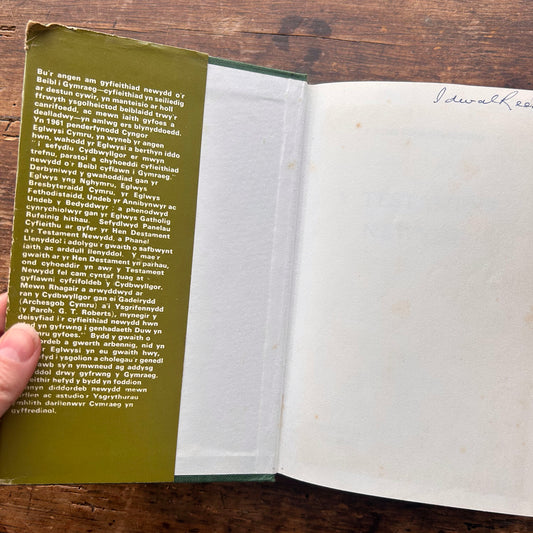 Bu'r angen am gyfieithiad newydd o'r
Beibl i Gymraeg—cyfieithiad yn seiliedig
ar destun cywir, yn manteisio ar holl
ffrwyth ysgolheictod beiblaidd trwy'r
canrifoedd, ac mewn iaith gyfoes a
dealladwy—yn amlwg ers blynyddoedd.
Yn 1961 penderfynodd Cyngor
Eglwysi Cymru, yn wyneb yr angen
hwn, wahodd yr Eglwysi a berthyn iddo
"i sefydlu Cydbwyllgor er mwyn
trefnu, paratoi a chyhoeddi cyfieithiad
newydd o'r Beibl cyflawn i Gymraeg."
Derbyniwyd y gwahoddiad gan yr
Eglwys yng Nghymru, Eglwys
Bresbyteraidd Cymru, yr Eglwys
Fethodistaidd, Undeb yr Annibynwyr ac
Undeb y Bedyddwyr: a phenodwyd
cynrychiolwyr gan yr Eglwys Gatholig
Rufeinig hithau. Sefydlwyd Panelau
Cyfieithu ar gyfer yr Hen Destament
a'r Testament Newydd, a Phanel
Llenyddol i adolygu'r gwaith o safbwynt
iaith ac arddull llenyddol. Y mae'r
gwaith ar yr Hen Destament yn parhau,
ond cyhoeddir yn awr y Testament
Newydd fel cam cyntaf tuag at
gyflawni cyfrifoldeb y Cydbwyllgor.
Mewn Rhagair a arwyddwyd ar
ran y Cydbwyllgor gan ei Gadeirydd
(Archesgob Cymru) a'i Ysgrifennydd
(y Parch. G. T. Roberts), mynegir y
deisyfiad i'r cyfieithiad newydd hwn
fod yn gyfrwng i genhadaeth Duw yn
gyfoes." Bydd y gwaith o
a gwerth arbennig, nid yn
Eglwysi yn eu gwaith hwy,
i ysgolion a cholegau'r genedl
sy'n ymwneud ag addysg
drwy gyfrwng y Gymraeg.
hefyd y bydd yn foddion
diddordeb newydd mewn
ac astudio'r Ysgrythurau
ymhlith darllenwyr Cymraeg yn
gyffredinol.
Idwal Rees